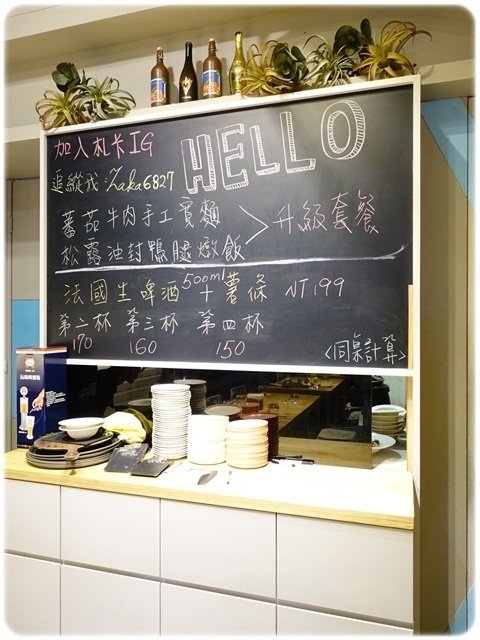 HELLO
加入札卡IG
追縱我:Zaka6827
蕃茄牛肉手工寬麵
松露油封鴨腿燉飯
>升級套餐
法國生啤酒500ml+薯條 NT199
第二杯 第三杯 第四杯
170 160 150
<同桌計算>